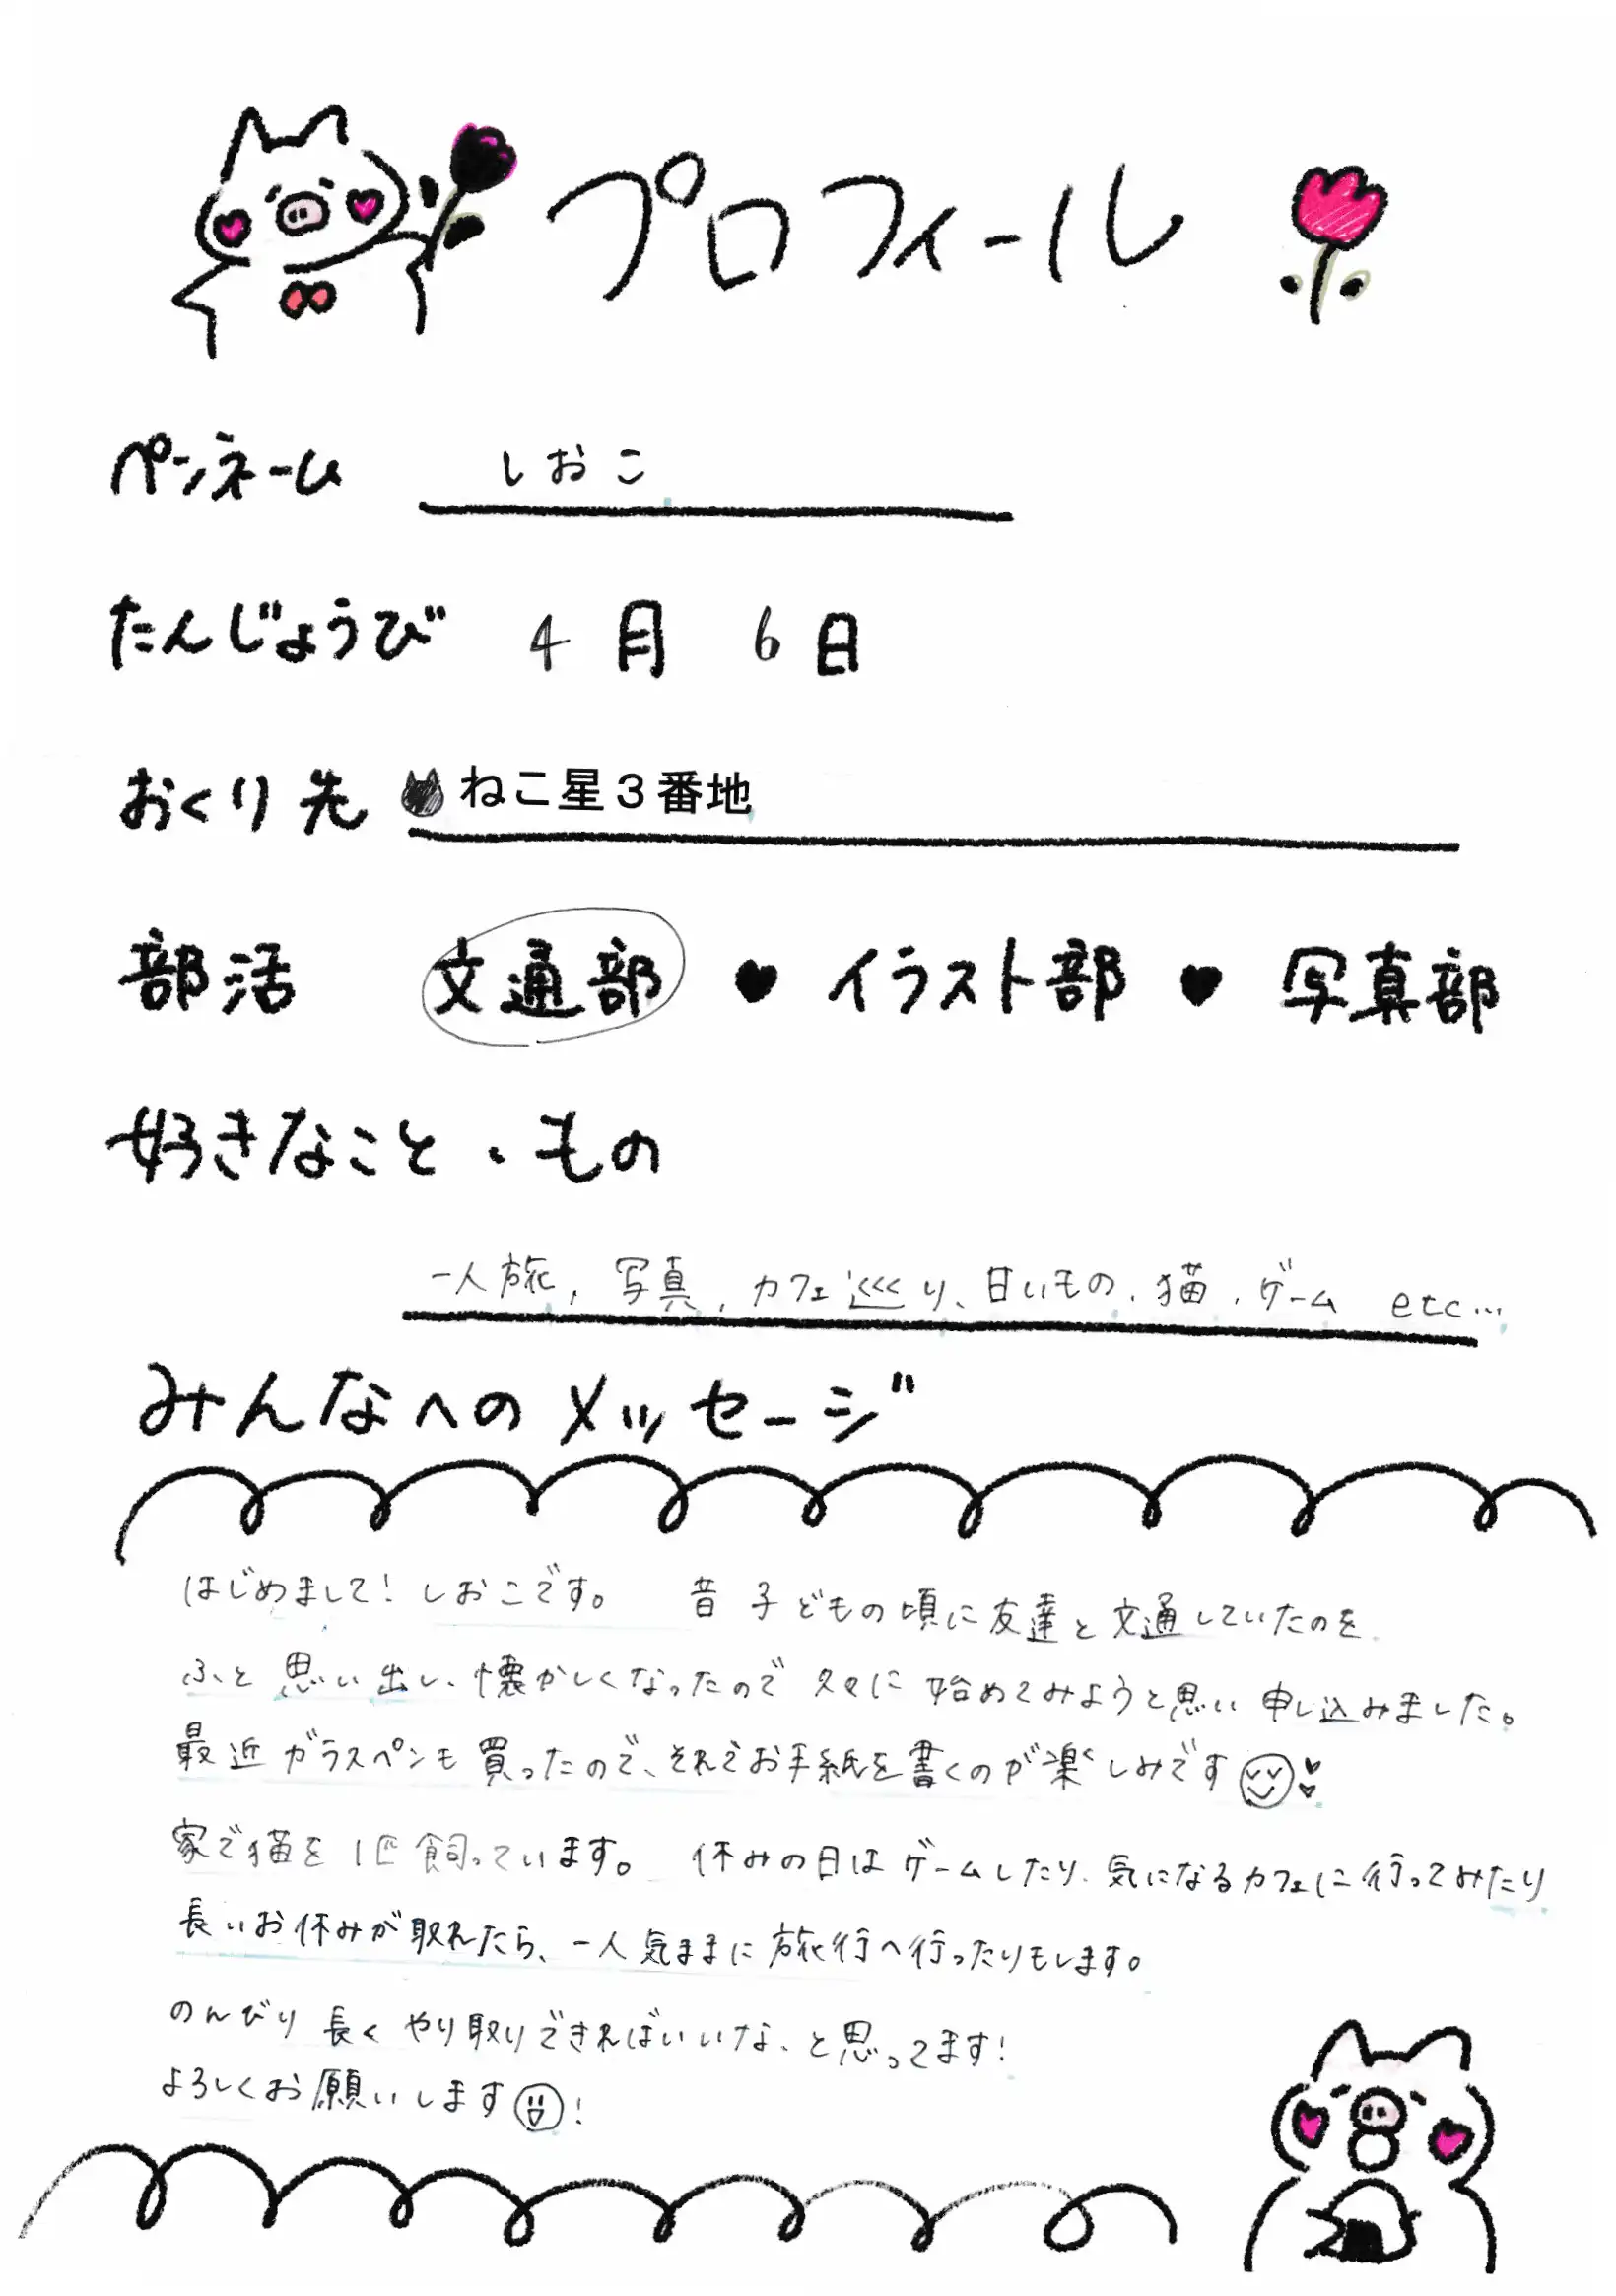 プロフィール
ペンネーム しおこ
たんじょうび 4月 6日
おくり先 ねこ星3番地
部活 文通部 ♥ イラスト部 ♥ 写真部
好きなこと・もの
一人旅、写真、カフェ巡り、甘いもの、猫、ゲーム etc…
みんなへのメッセージ
はじめまして!しおこです。 昔 子どもの頃に友達と文通していたのを
ふと思い出し、懐かしくなったので久々に始めてみようと思い申し込みました。
最近ガラスペンも買ったので、それでお手紙を書くのが楽しみです
家で猫を1匹飼っています。休みの日はゲームしたり、気になるカフェに行ってみたり
長いお休みが取れたら、一人気ままに旅行へ行ったりもします。
のんびり長くやり取りできればいいな、と思ってます!
よろしくお願いします!